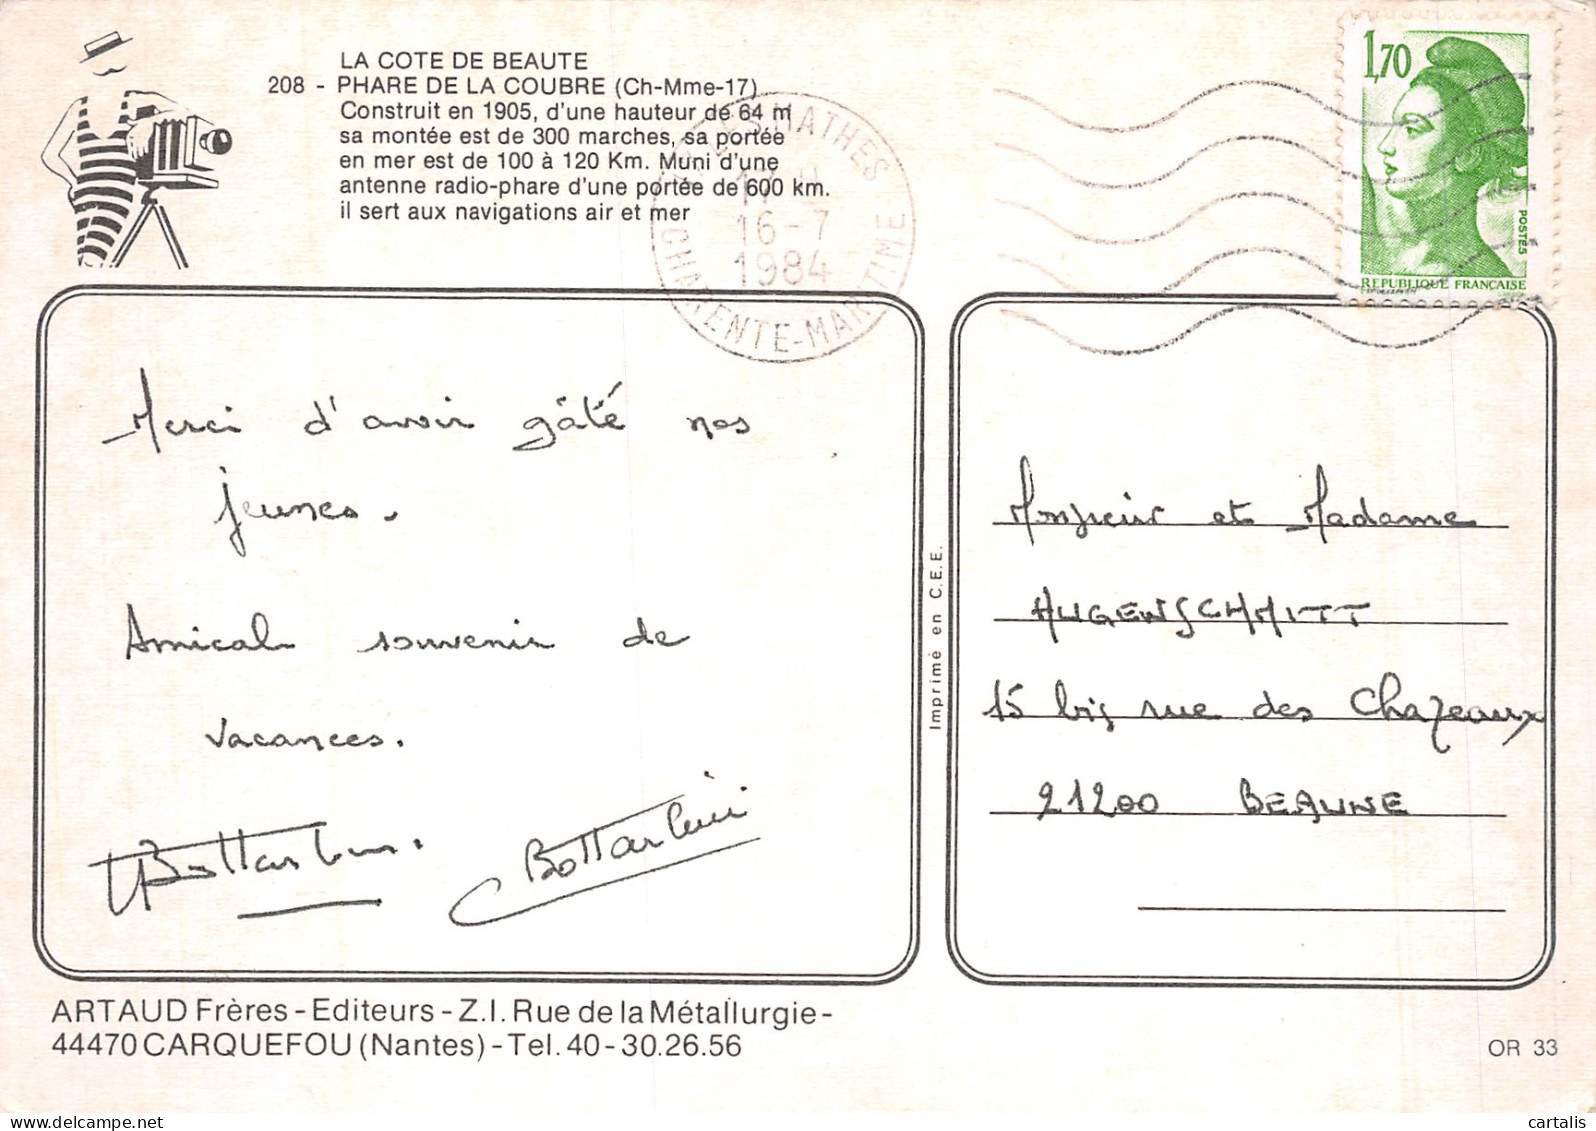 LA COTE DE BEAUTE
208 - PHARE DE LA COUBRE (Ch-Mme-17)
Construit en 1905, d'une hauteur de 64 m
sa montée est de 300 marches, sa portée
en mer est de 100 à 120 Km. Muni d'une
antenne radio-phare d'une portée de 600 km.
il sert aux navigations air et mer
MATHES
16-7
1984
CHARENTE-MARITIME
1,70
POSTES
REPUBLIQUE FRANÇAISE
Merci d'avoir gâté nos
jeunes.
Amical souvenir de
vacances.
Bottarlini
Imprimé en C.E.E.
Monsieur et Madame
AUGENSCHMITT
15 bis rue des Chazeaux
21200 BEAUNE
ARTAUD Frères - Editeurs - Z.I. Rue de la Métallurgie -
44470 CARQUEFOU (Nantes) - Tel. 40-30.26.56
OR 33
www.cartapostale.net
cartalis